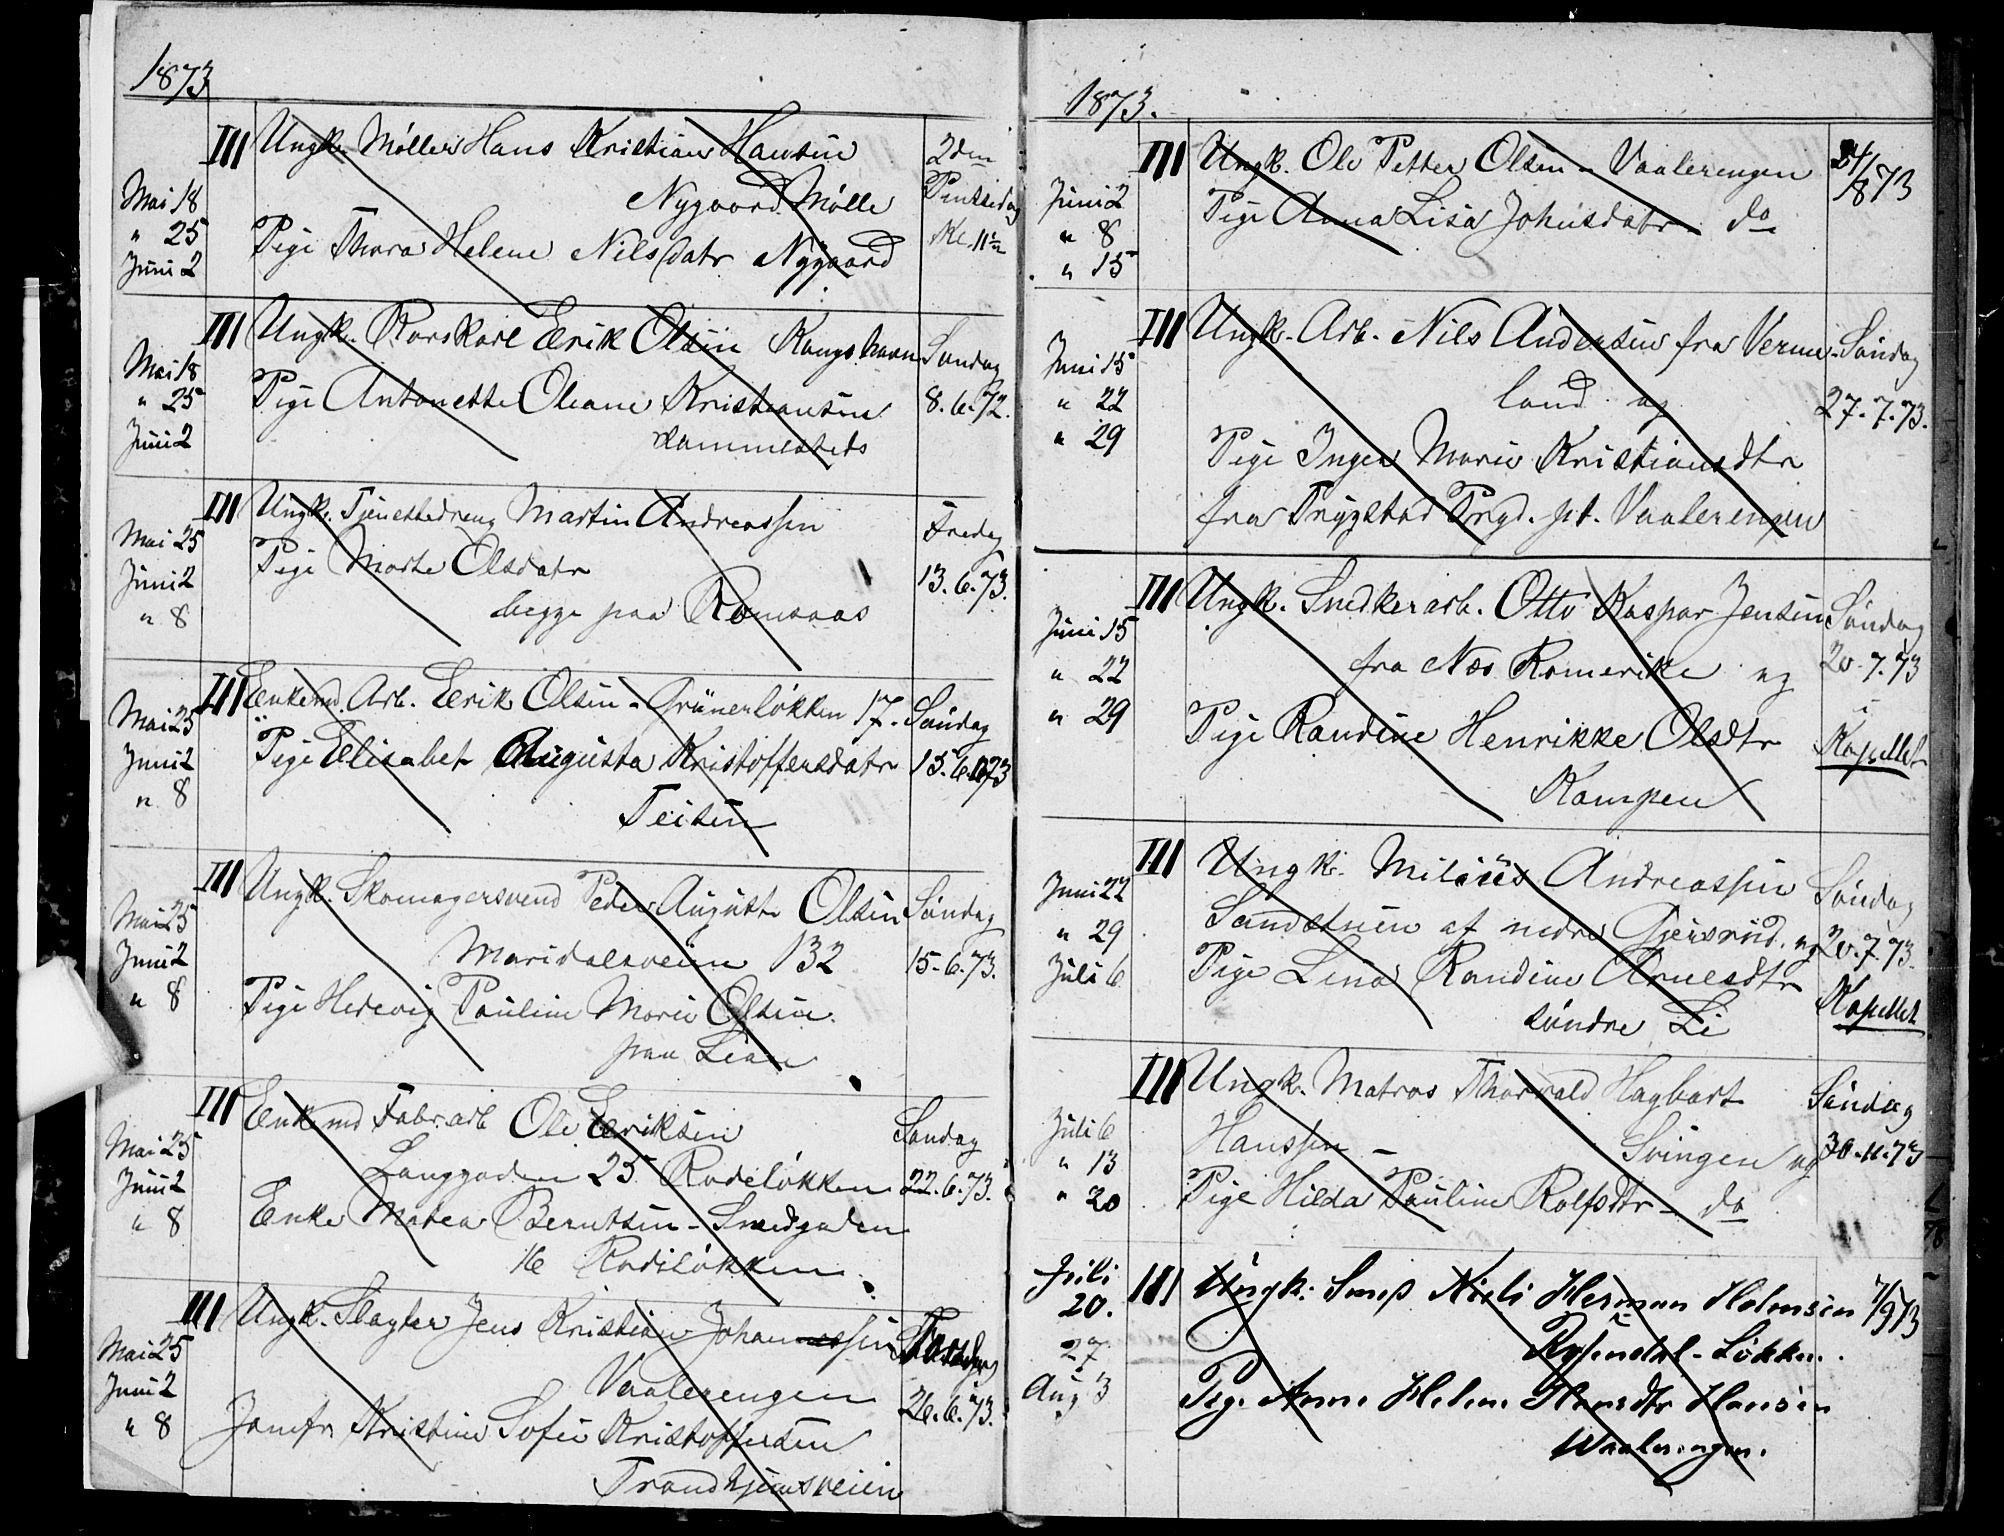 1873
III Ungk. Møller Hans Kristian Hansen 2den
Mai 18 Nygaard Mølle Pintsedag
" 25 Pige Thora Helene Nilsdatr Nygaard Kl. 11½
Juni 2
III Ungk. Erik Olsen Kongshavn Søndag
Mai 18
" 25 Pige Antonette Oleane Kristiansen 8.6.72.
Juni 2
III Ungk. Tjenestedreng Martin Andreassen Fredag
Mai 25
Juni 2 Pige Marte Olsdatr 13.6.73.
" 8 begge paa Romsaas
III Enkemd. Arb. Erik Olsen - Grünerløkken 17. Søndag
Mai 25
Juni 2 Pige Elisabet Augusta Kristoffersdatr 15.6.1873
" 8 Teisen
III Ungk. Skomagersvend Peder August Olsen Søndag
Mai 25
Juni 2 Maridalsveien 132 15.6.73.
" 8 Pige Hedevig Pauline Marie Olsen
paa Lean
III Enkemd Fabr.arb Ole Eriksen Søndag
Mai 25
Juni 2 Langgaden 25 Rodeløkken 22.6.73.
" 8 Enke Matea Berntsen - Snedgaden
16 Rodeløkken
III Ungk. Slagter Jens Kristian Johannessen
Mai 25
Juni 2 Vaalerengen 26.6.73.
" 8 Jomfr Kristine Sofie Kristoffersen
Trondhjemsveien
1873.
III Ungk. Ole Petter Olsen - Vaalerengen 24/873
Juni 2
" 8 Pige Anna Lisa Johnsdatr - do
" 15
III Ungk. Arb. Nils Andersen fra Verm- Søndag
Juni 15
" 22 land og 27.7.73.
" 29 Pige Inger Marie Kristiansdtr
fra Trygstad Prgd. pt. Vaalerengen
III Ungk. Snedkerarb. Otto Kaspar Jensen Søndag
Juni 15
" 22 fra Næs Romerike og 20.7.73
" 29 Pige Randine Henrikke Olsdtr i Kapellet
Kampen
III Ungk. Milius Andreassen Søndag
Juni 22
" 29 Sandstuen af nedre Gjersrud. og 20.7.73.
Juli 6 Pige Lina Randine Arnesdtr Kapellet
søndre Li
III Ungk. Matros Thorvald Hagbart Søndag
Juli 6
" 13 Hanssen - Svingen og 30.11.73
" 20 Pige Hilda Pauline Rolfsdtr - do
Juli
20. III Ungk. Smed Herman Holmsen 7/9 73
27 Rosendal - Løkken.
Aug 3 Pige Anne Helene Hansdtr Hansen
Waalerengen.